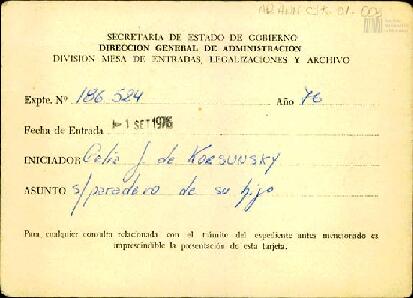 AR ANM CJK 01. 001
SECRETARIA DE ESTADO DE GOBIERNO
DIRECCION GENERAL DE ADMINISTRACION
DIVISION MESA DE ENTRADAS, LEGALIZACIONES Y ARCHIVO
Expte. Nº 186 584 Año 76
Fecha de Entrada 1 SET 1976
INICIADOR Celia J. de KORSUNSKY
ASUNTO s/paradero de su hijo
Para cualquier consulta relacionada con el trámite del expediente antes mencionado es
imprescindible la presentación de esta tarjeta.